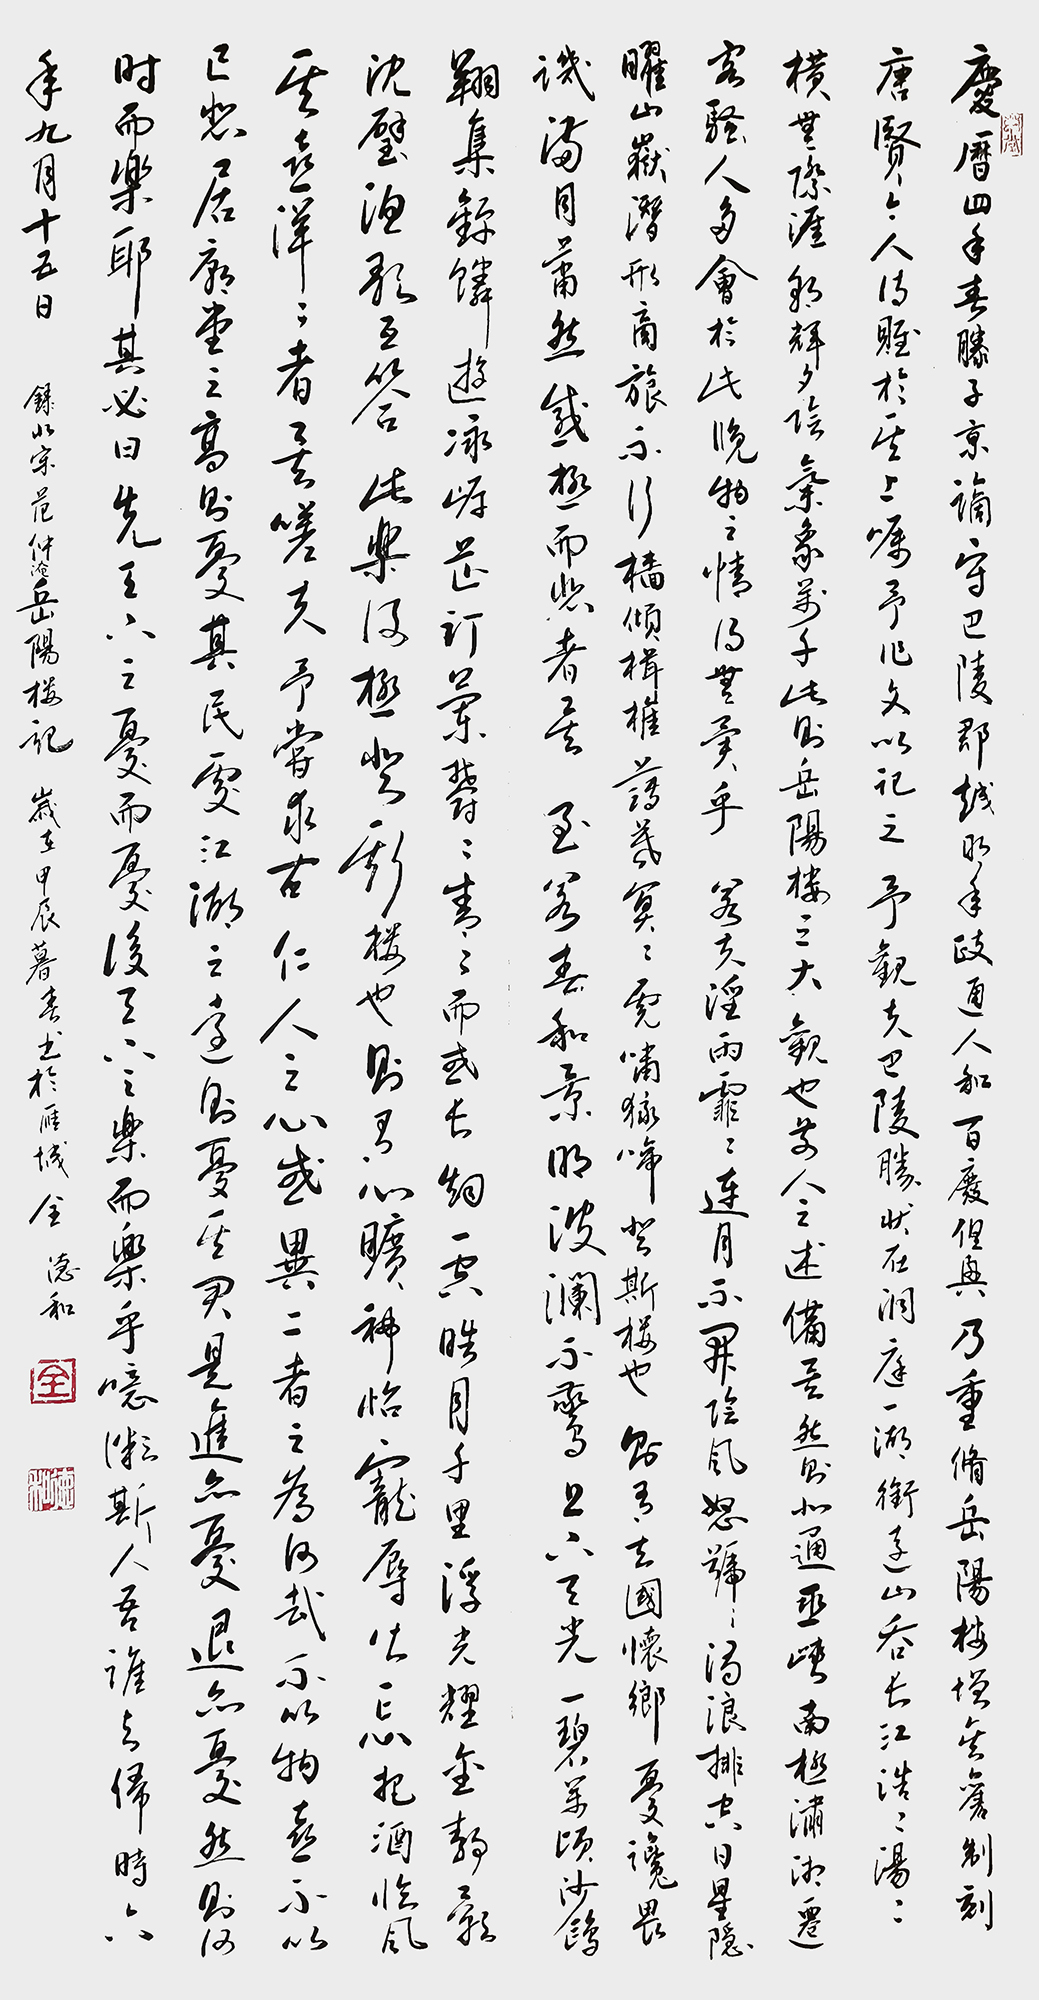 慶曆四年春滕子京謫守巴陵郡越明年政通人和百廢俱興乃重脩岳陽樓增其舊制刻
唐賢今人詩賦於其上囑予作文以記之予觀夫巴陵勝狀在洞庭一湖銜遠山吞長江浩浩湯湯
橫無際涯朝輝夕陰氣象萬千此則岳陽樓之大觀也前人之述備矣然則北通巫峽南極瀟湘遷
客騷人多會於此覽物之情得無異乎若夫淫雨霏霏連月不開陰風怒號濁浪排空日星隱
曜山嶽潛形商旅不行檣傾楫摧薄暮冥冥虎嘯猿啼登斯樓也則有去國懷鄉憂讒畏
譏滿目蕭然感極而悲者矣至若春和景明波瀾不驚上下天光一碧萬頃沙鷗
翔集錦鱗游泳岸芷汀蘭鬱鬱青青而或長煙一空皓月千里浮光耀金靜影
沈璧漁歌互答此樂何極登斯樓也則有心曠神怡寵辱皆忘把酒臨風
其喜洋洋者矣嗟夫予嘗求古仁人之心或異二者之為何哉不以物喜不以
己悲居廟堂之高則憂其民處江湖之遠則憂其君是進亦憂退亦憂然則何
时而樂耶其必曰先天下之憂而憂後天下之樂而樂乎噫微斯人吾誰與歸時六
年九月十五日 錄北宋范仲淹岳陽樓記 歲在甲辰暮春書於雁城 全德和
全
德和